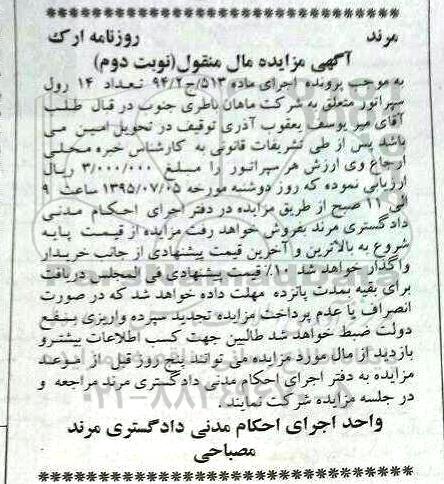 مرند روزنامه ارک
آگهی مزایده مال منقول(نوبت دوم)
به موجب پرونده اجرای ماده ۵۱۳/ج۹۴/۲ تعداد ۱۴ رول
سپراتور متعلق به شرکت ماهان باطری جنوب در قبال طلب
آقای میر یوسف یعقوب آذری توقیف در تحویل امین می
باشد پس از طی تشریفات قانونی به کارشناس خبره محلی
ارجاع وی ارزش هر سپراتور را مبلغ ۳/۰۰۰/۰۰۰ ریال
ارزیابی نموده که روز دوشنبه مورخه ۱۳۹۵/۰۷/۰۵ ساعت ۹
الی ۱۱ صبح از طریق مزایده در دفتر اجرای احکام مدنی
دادگستری مرند بفروش خواهد رفت مزایده از قیمت پایه
شروع به بالاترین و آخرین قیمت پیشنهادی از جانب خریدار
واگذار خواهد شد ۱۰٪ قیمت پیشنهادی فی المجلس دریافت
برای بقیه بمدت پانزده مهلت داده خواهد شد که در صورت
انصراف یا عدم پرداخت مزایده تجدید سپرده واریزی بنفع
دولت ضبط خواهد شد طالبین جهت کسب اطلاعات بیشترو
بازدید از مال مورد مزایده می توانند پنج روز قبل از موعد
مزایده به دفتر اجرای احکام مدنی دادگستری مرند مراجعه و
در جلسه مزایده شرکت نمایند.
واحد اجرای احکام مدنی دادگستری مرند
مصباحی